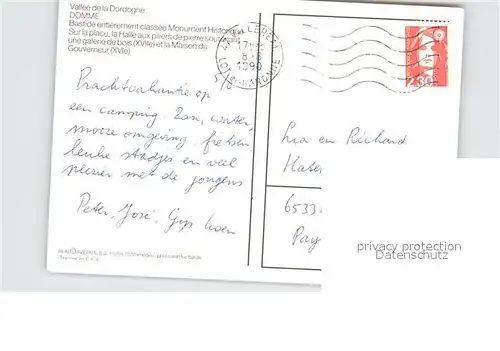 Vallée de la Dordogne
DOMME
Bastide entièrement classée Monument Historique
Sur la place, la Halle aux piliers de pierre soutenant
une galerie de bois (XVIIe) et la Maison du
Gouverneur (XVIe)
17H
8-8
1990
LOT-ET-GARONNE
2,30
Prachtvakantie op
een camping. Zon, water,
mooie omgeving, fietsen
leuke stadjes en veel
plezier met de jongens
Peter, José, Gijs
Lia en Richard
6533
Pay
privacy protection
animalfunde®